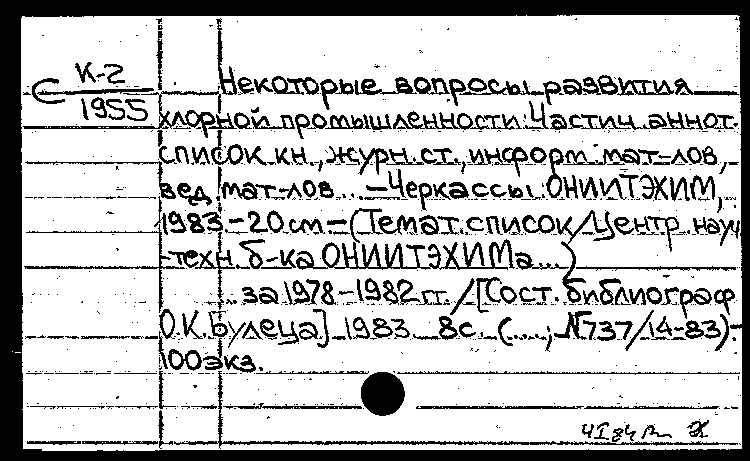 С К-2
1955
Некоторые вопросы развития
хлорной промышленности: Частич. аннот.
список кн., журн. ст., информ. мат-лов,
вед. мат-лов... — Черкассы: ОНИИТЭХИМ,
1983 - 20 см — (Темат. список / Центр. науч.
-техн. б-ка ОНИИТЭХИМа...)
... за 1978-1982 гг. / [Сост. библиограф
О.К. Булеца]. 1983. 8с. (....; №737/14-83) -
100 экз.